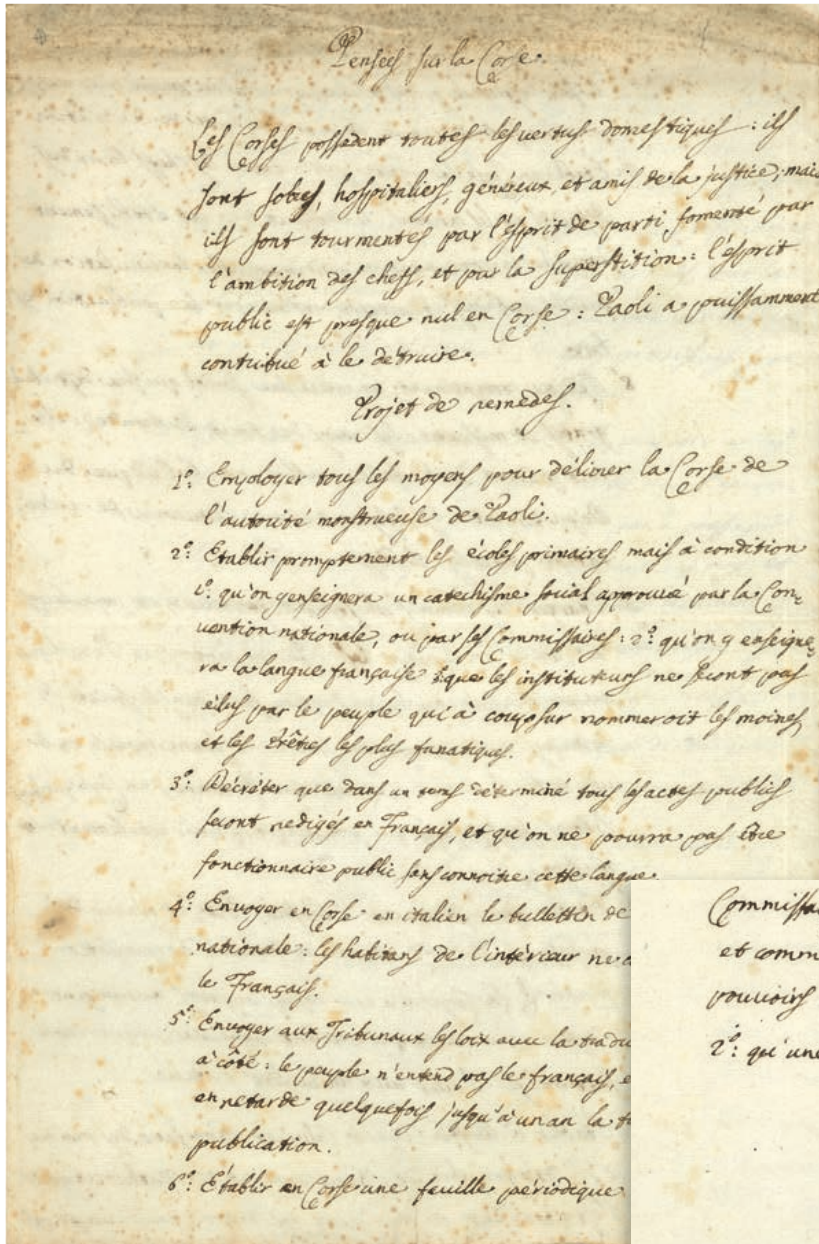 Pensées sur la Corse.
Les Corses possedent toutes les vertus domestiques : ils
sont sobres, hospitaliers, généreux, et amis de la justice; mais
ils sont tourmentés par l'esprit de parti fomenté par
l'ambition des chefs, et par la superstition : l'esprit
public est presque nul en Corse : Paoli a puissamment
contribué à le détruire.
Projet de remedes.
1º: Employer tous les moyens pour délivrer la Corse de
l'autorité monstrueuse de Paoli.
2º: Etablir promptement les écoles primaires mais à condition
1º: qu'on y enseignera un catechisme social approuvé par la Con=
vention nationale, ou par ses Commissaires : 2º: qu'on y enseigne=
ra la langue française & que les instituteurs ne seront pas
élus par le peuple qui à coup sur nommeroit les moines,
et les Prêtres les plus fanatiques.
3º: Décréter que dans un tems déterminé tous les actes publics
seront redigés en Français, et qu'on ne pourra pas être
fonctionnaire public sans connoitre cette langue.
4º: Envoyer en Corse en italien le bullettin de
nationale : les habitans de l'intérieur ne
le Français.
5º: Envoyer aux Tribunaux les loix avec la tradu
à côté : le peuple n'entend pas le français, e
en retarde quelquefois jusqu'à un an la t
publication.
6º: Établir en Corse une feuille périodique
Commissa
et comm
pouvoirs
2º: qu'une